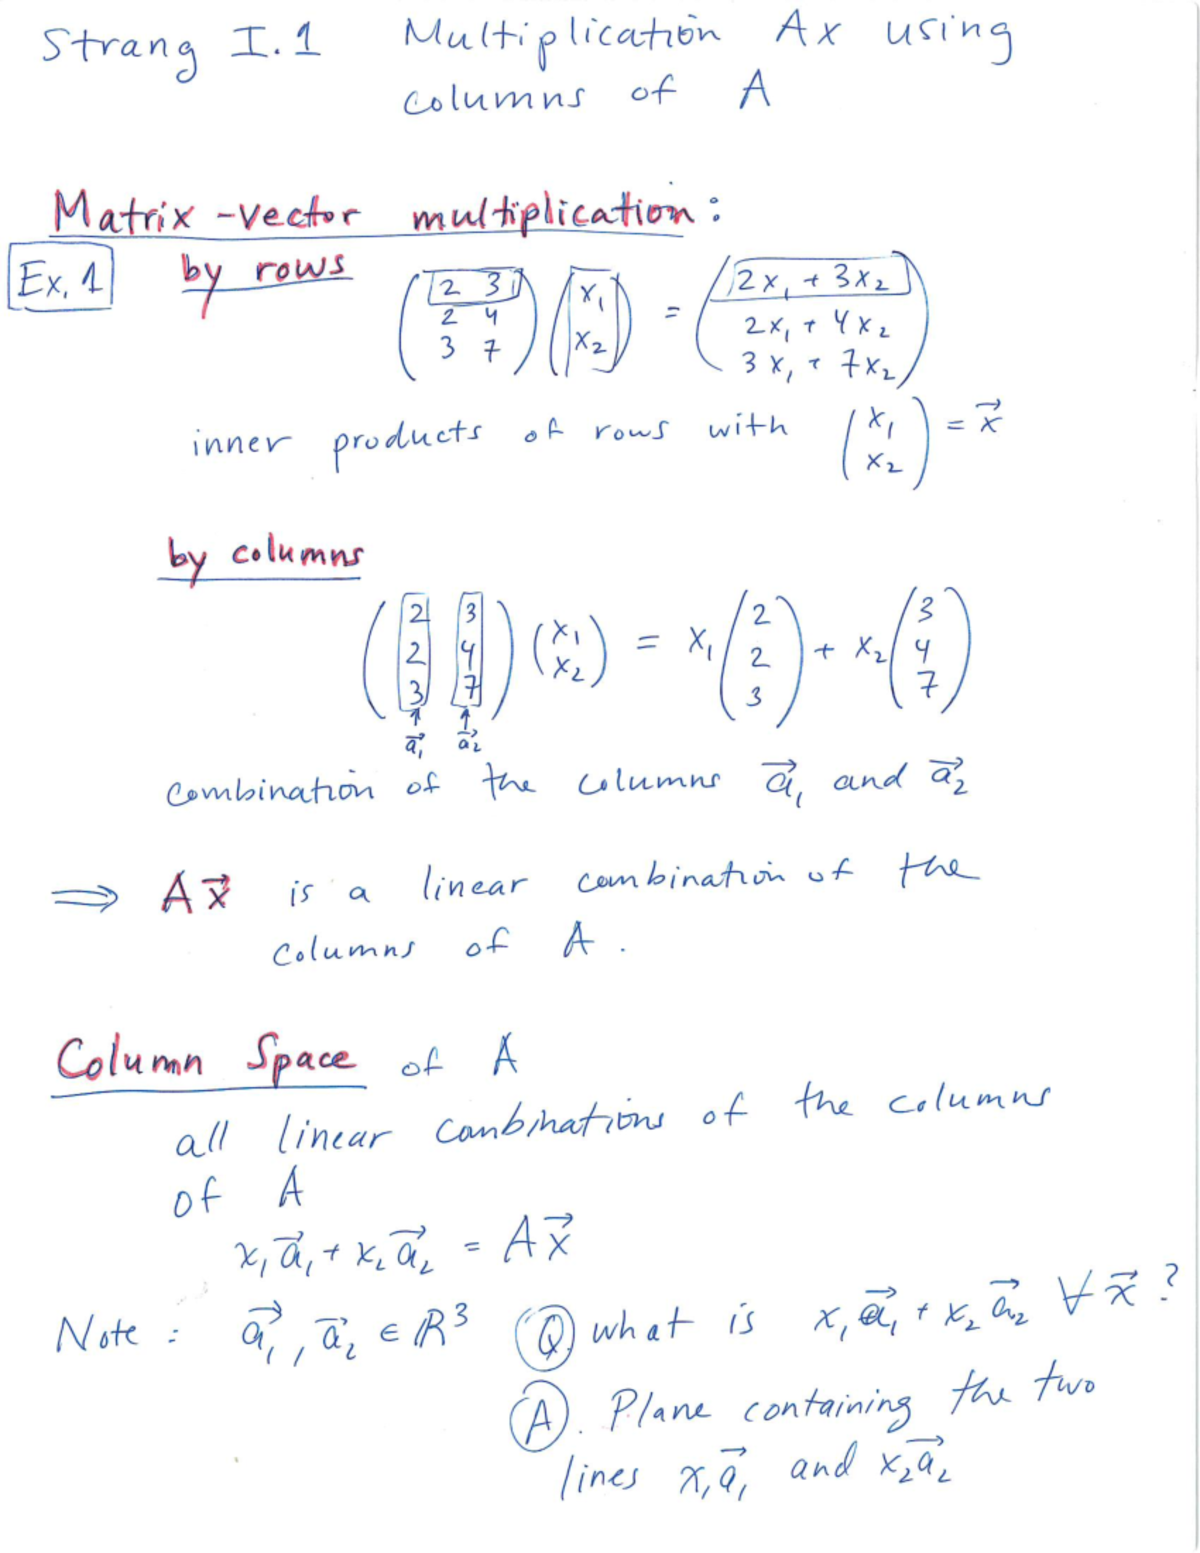 Strang I.1 Multiplication Ax using
columns of A
Matrix-vector multiplication:
Ex. 1 by rows
(2 3; 2 4; 3 7) (x₁; x₂) = (2x₁ + 3x₂; 2x₁ + 4x₂; 3x₁ + 7x₂)
inner products of rows with (x₁; x₂) = x⃗
by columns
(2 3; 2 4; 3 7) (x₁; x₂) = x₁ (2; 2; 3) + x₂ (3; 4; 7)
↑ ↑
a⃗₁ a⃗₂
combination of the columns a⃗₁ and a⃗₂
⇒ Ax⃗ is a linear combination of the
columns of A.
Column Space of A
all linear combinations of the columns
of A
x₁a⃗₁ + x₂a⃗₂ = Ax⃗
Note: a⃗₁, a⃗₂ ∈ ℝ³ Q. what is x₁a⃗₁ + x₂a⃗₂ ∀ x⃗?
A. Plane containing the two
lines x₁a⃗₁ and x₂a⃗₂